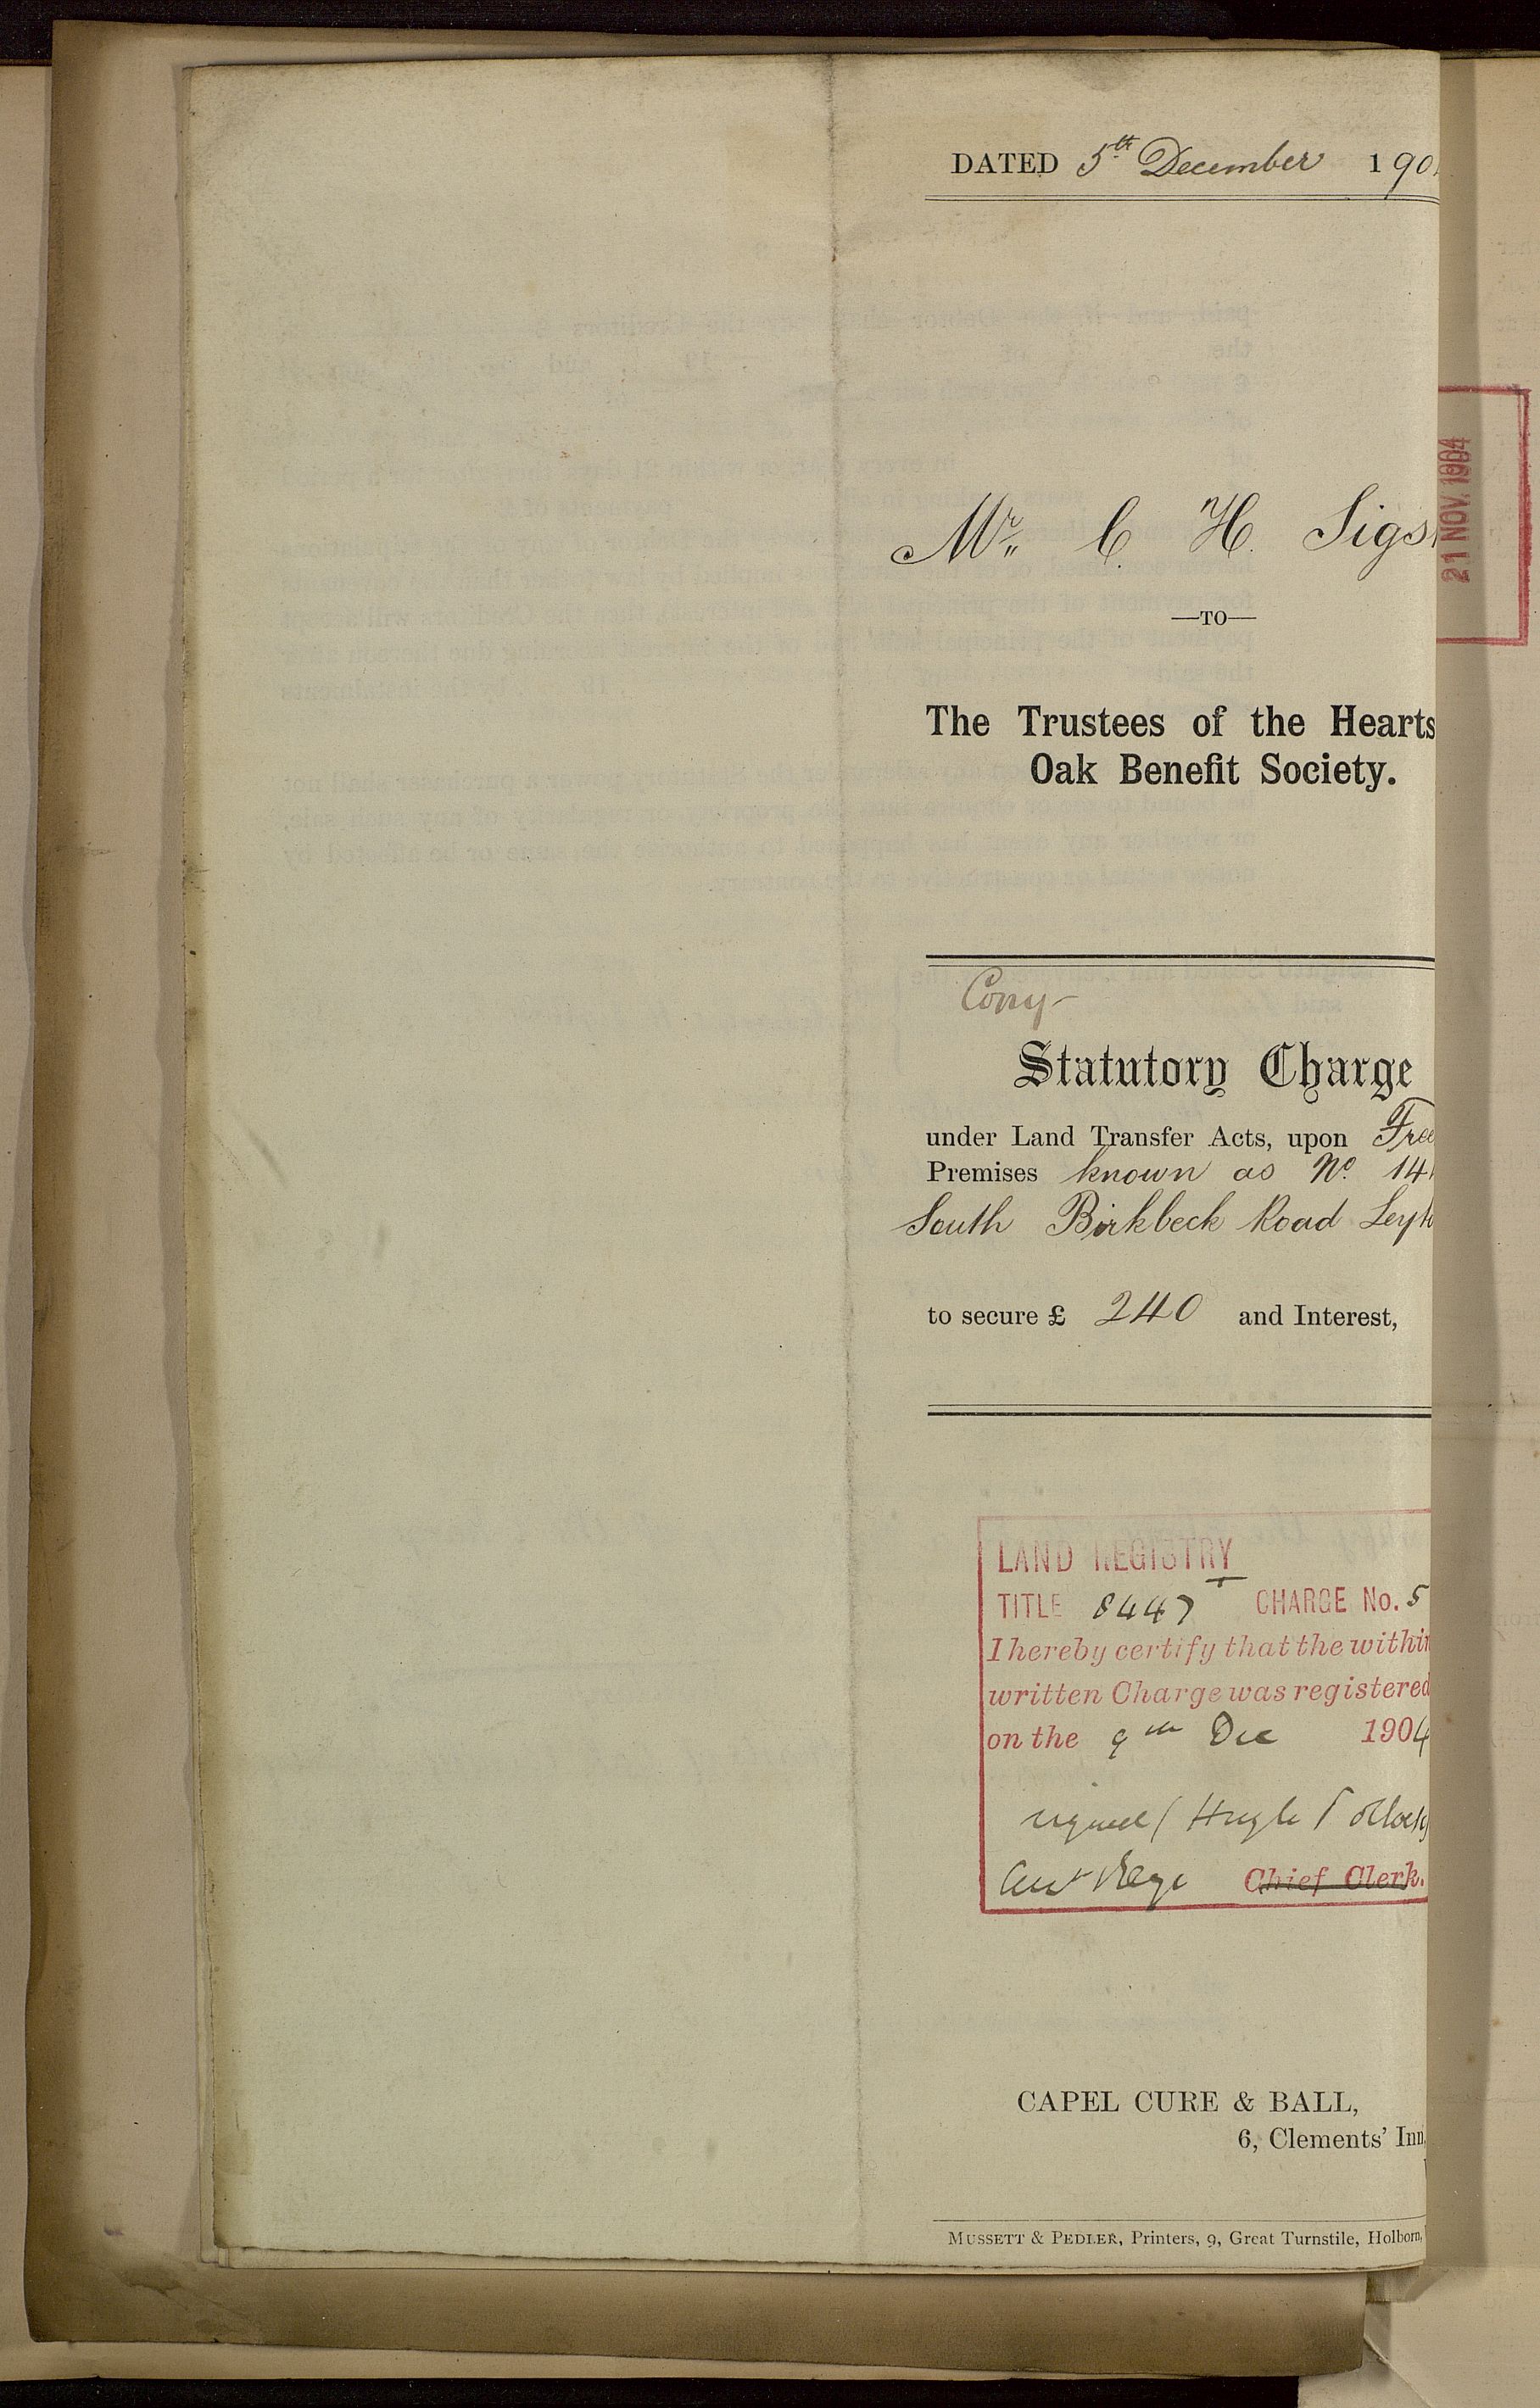 DATED 5th December 190
Mr. C. H. Sigs
—TO—
The Trustees of the Hearts
Oak Benefit Society.
Copy
Statutory Charge
under Land Transfer Acts, upon Free
Premises known as No. 14
South Birkbeck Road Leyt
to secure £ 240 and Interest,
LAND REGISTRY
TITLE 8447 CHARGE No. 5
I hereby certify that the within
written Charge was registered
on the 9th Dec 1904
signed / Hugh Pollock
Chief Clerk.
CAPEL CURE & BALL,
6, Clements' Inn,
MUSSETT & PEDLER, Printers, 9, Great Turnstile, Holborn,
21 NOV. 1904